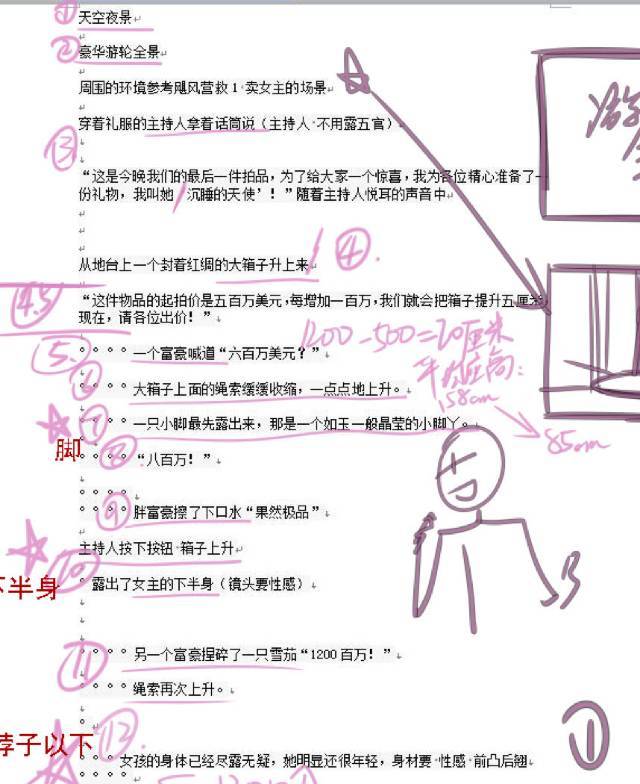 ① 天空夜景
② 豪华游轮全景
周围的环境参考飓风营救1 卖女主的场景
穿着礼服的主持人拿着话筒说（主持人 不用露五官）
③
“这是今晚我们的最后一件拍品，为了给大家一个惊喜，我为各位精心准备了一
份礼物，我叫她‘沉睡的天使’！”随着主持人悦耳的声音中
从地台上一个封着红绸的大箱子升上来 ④
4.5 “这件物品的起拍价是五百万美元，每增加一百万，我们就会把箱子提升五厘米，
现在，请各位出价！”
1200-500=70厘米
⑤ 一个富豪喊道“六百万美元？”
158cm
⑥ 大箱子上面的绳索缓缓收缩，一点点地上升。
⑦ 一只小脚最先露出来，那是一个如玉一般晶莹的小脚丫。
85cm
脚
⑧ “八百万！”
⑨ 胖富豪擦了下口水“果然极品”
主持人按下按钮 箱子上升
⑩ 露出了女主的下半身（镜头要性感）
下半身
⑪ 另一个富豪捏碎了一只雪茄“1200百万！”
绳索再次上升。
①
⑫
脖子以下
女孩的身体已经尽露无疑，她明显还很年轻，身材要 性感 前凸后翘